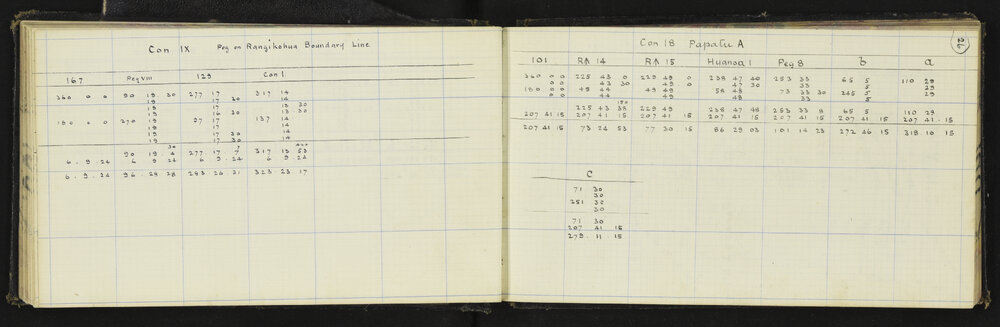 Con IX   Peg on Rangikohua Boundary Line
167   Peg VIII   129   Con I
360 0 0   90 19 30   277 17   317 14
19   17 30   14
19   17   13 30
19   16 30   13 30
180 0 0   270 19   97 17   137 14
19   17   14
19   17 30   14
19   17 30   14
90 19 4   277 17 7   317 13 53
6 . 9 . 24   6 9 24   6 . 9 . 24   6 9 24
6 . 9 . 24   96 . 28 28   283 . 26 . 31   323 . 23 . 17
26
Con 18 Papatu A
101   RA 14   RA 15   Huanoa 1   Peg 8   b   a
360 0 0   225 43 0   229 49 0   238 47 40   253 33   65 5   110 29
0 0   43 30   49 0   47 30   33   5   29
180 0 0   45 44   49 49   58 48   73 33 30   245 5   29
0 0   44   49   48   33   5
225 43 38   229 49   238 47 48   253 33 8   65 5   110 29
207 41 15   207 41 15   207 41 15   207 41 15   207 41 15   207 41 15   207 41 . 15
207 41 15   73 24 53   77 30 15   86 29 03   101 14 23   272 46 15   318 10 15
C
71 30
30
251 30
30
71 30
207 41 15
279 . 11 . 15